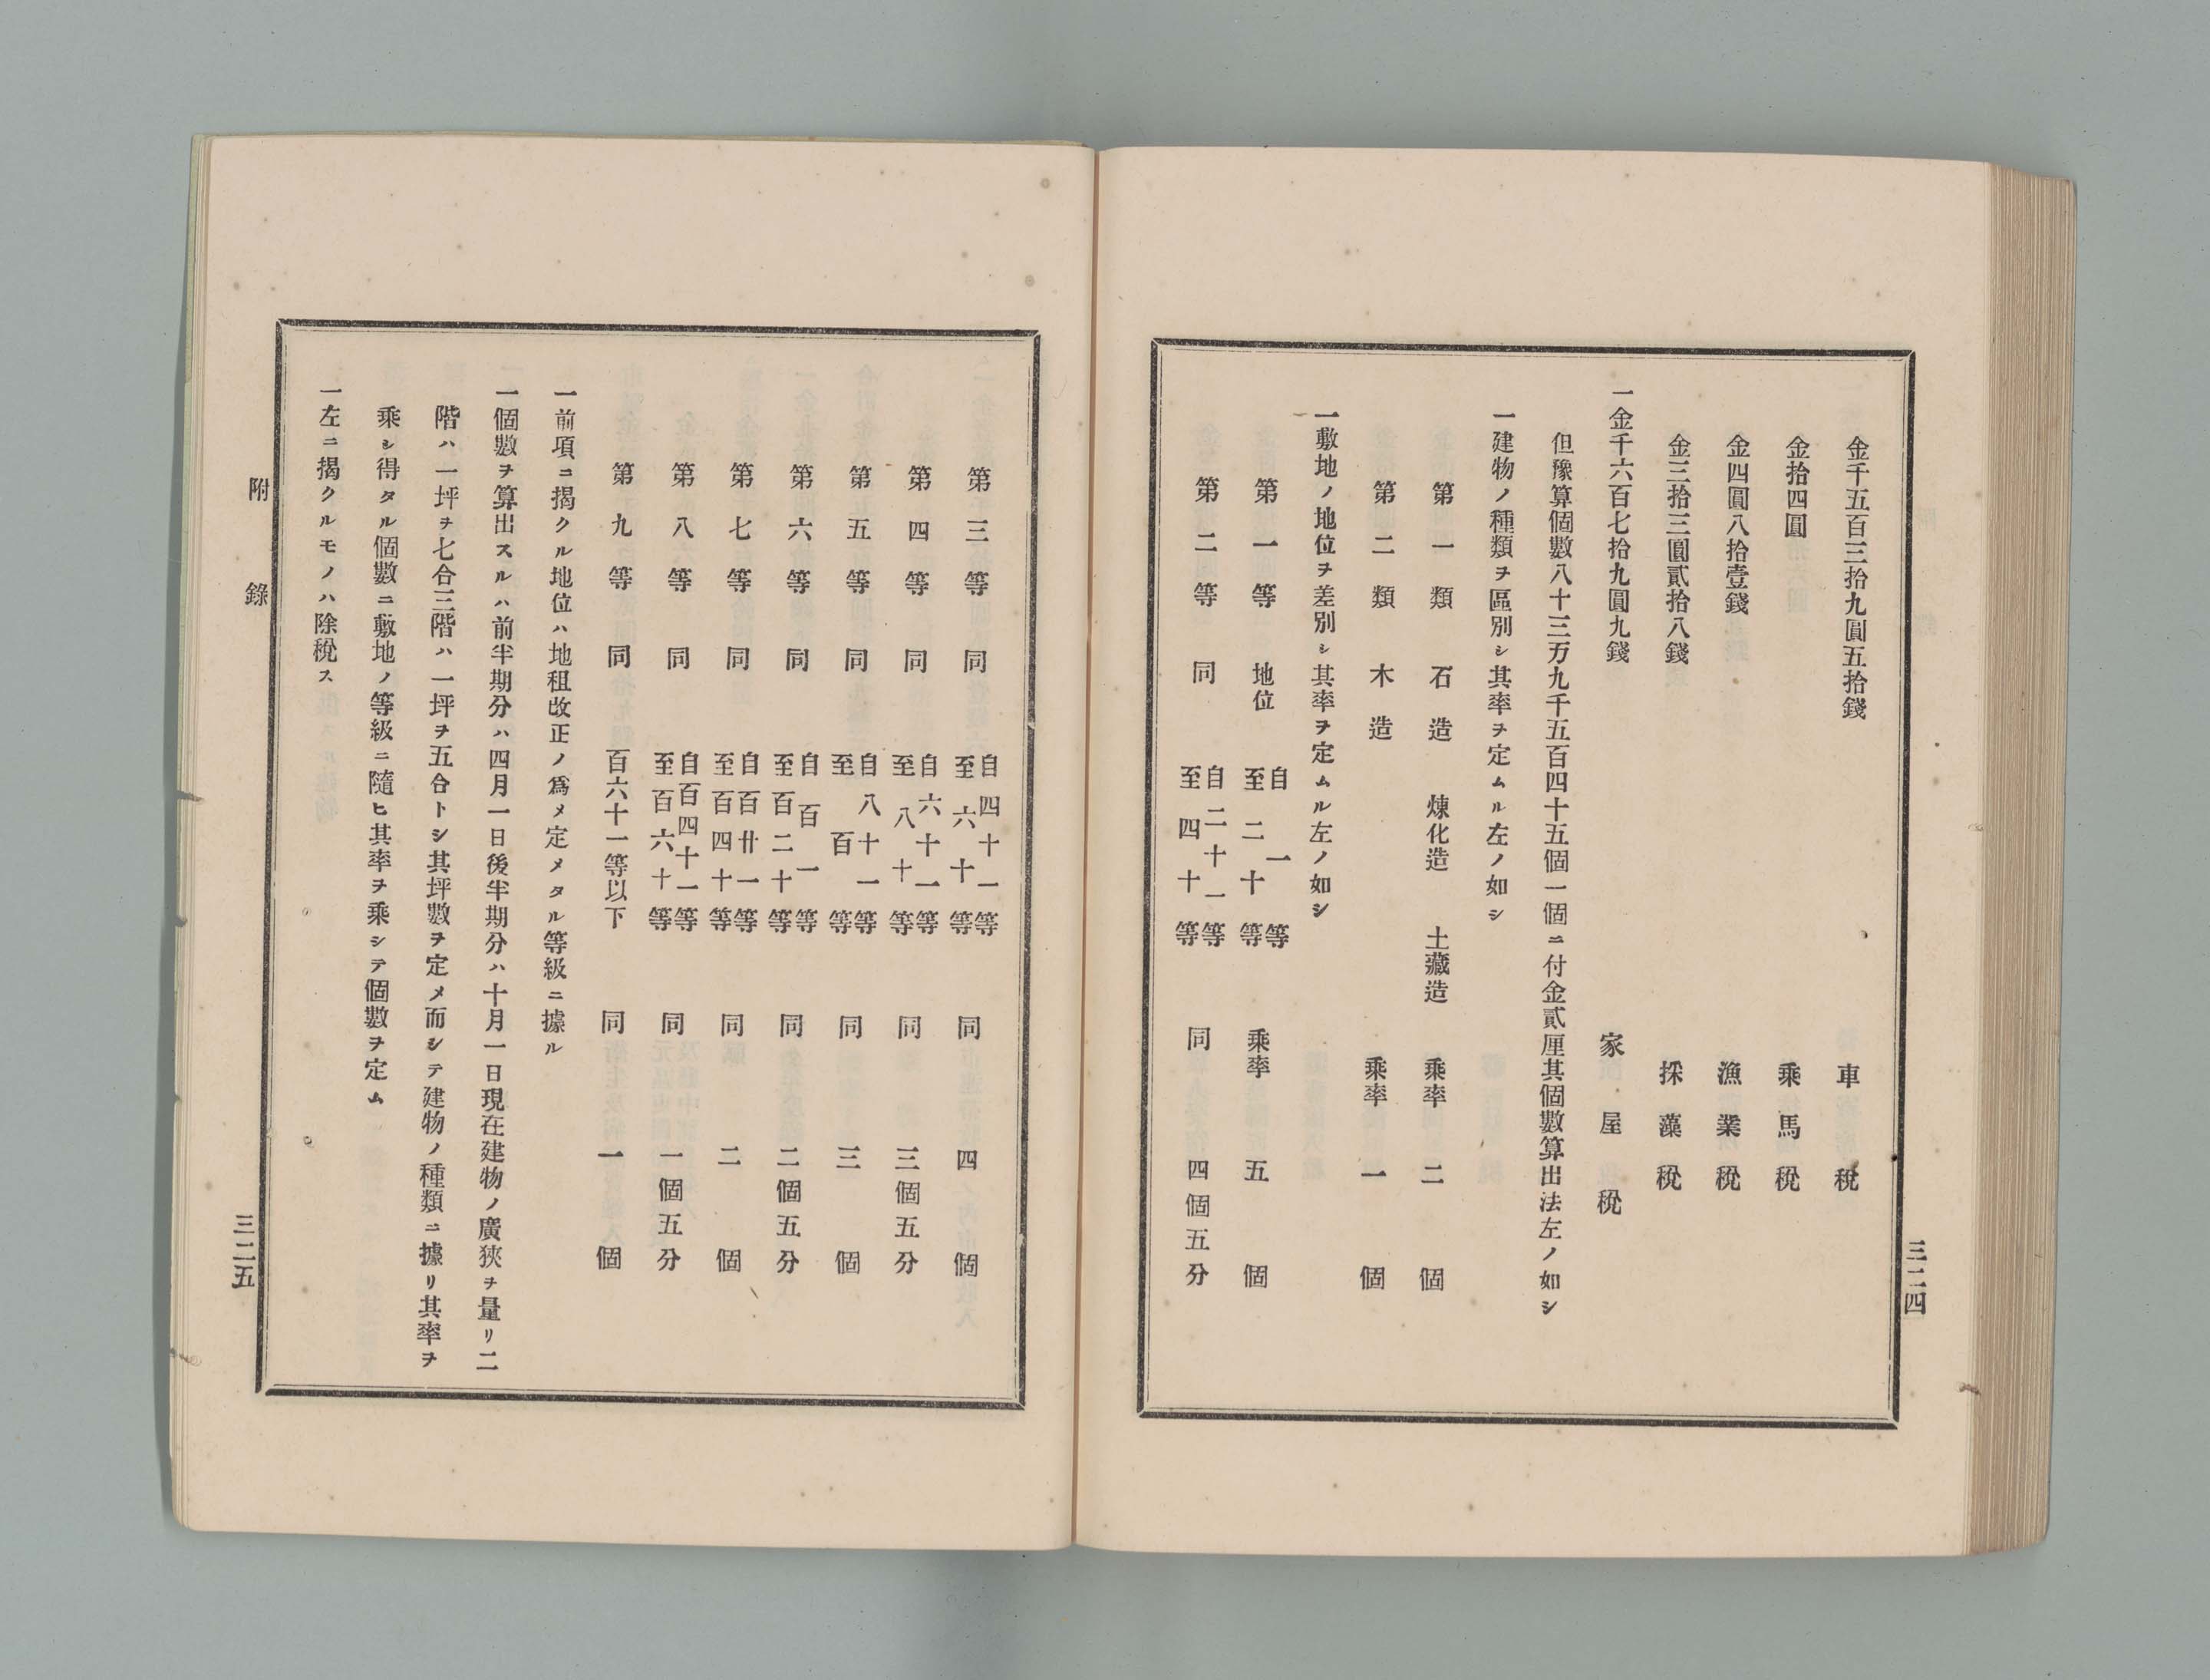 金千五百三拾九圓五拾錢　車稅
金拾四圓　乘馬稅
金四圓八拾壹錢　漁業稅
金三拾三圓貳拾八錢　採藻稅
一金千六百七拾九圓九錢　家屋稅
但豫算個數八十三万九千五百四十五個一個ニ付金貳厘其個數算出法左ノ如シ
一建物ノ種類ヲ區別シ其率ヲ定ムル左ノ如シ
第一類　石造　煉化造　土藏造　乘率　二個
第二類　木造　乘率　一個
一敷地ノ地位ヲ差別シ其率ヲ定ムル左ノ如シ
第一等　地位　自一等至二十等　乘率　五個
第二等　同　自二十一等至四十等　同　四個五分
三二四
第三等　同　自四十一等至六十等　同　四個
第四等　同　自六十一等至八十等　同　三個五分
第五等　同　自八十一等至百等　同　三個
第六等　同　自百一等至百二十等　同　二個五分
第七等　同　自百廿一等至百四十等　同　二個
第八等　同　自百四十一等至百六十等　同　一個五分
第九等　同　百六十一等以下　同　一個
一前項ニ揭クル地位ハ地租改正ノ爲メ定メタル等級ニ據ル
一個數ヲ算出スルハ前半期分ハ四月一日後半期分ハ十月一日現在建物ノ廣狹ヲ量リ二
階ハ一坪ヲ七合三階ハ一坪ヲ五合トシ其坪數ヲ定メ而シテ建物ノ種類ニ據リ其率ヲ
乘シ得タル個數ニ敷地ノ等級ニ隨ヒ其率ヲ乘シテ個數ヲ定ム
一左ニ揭クルモノハ除稅ス
附錄
三二五